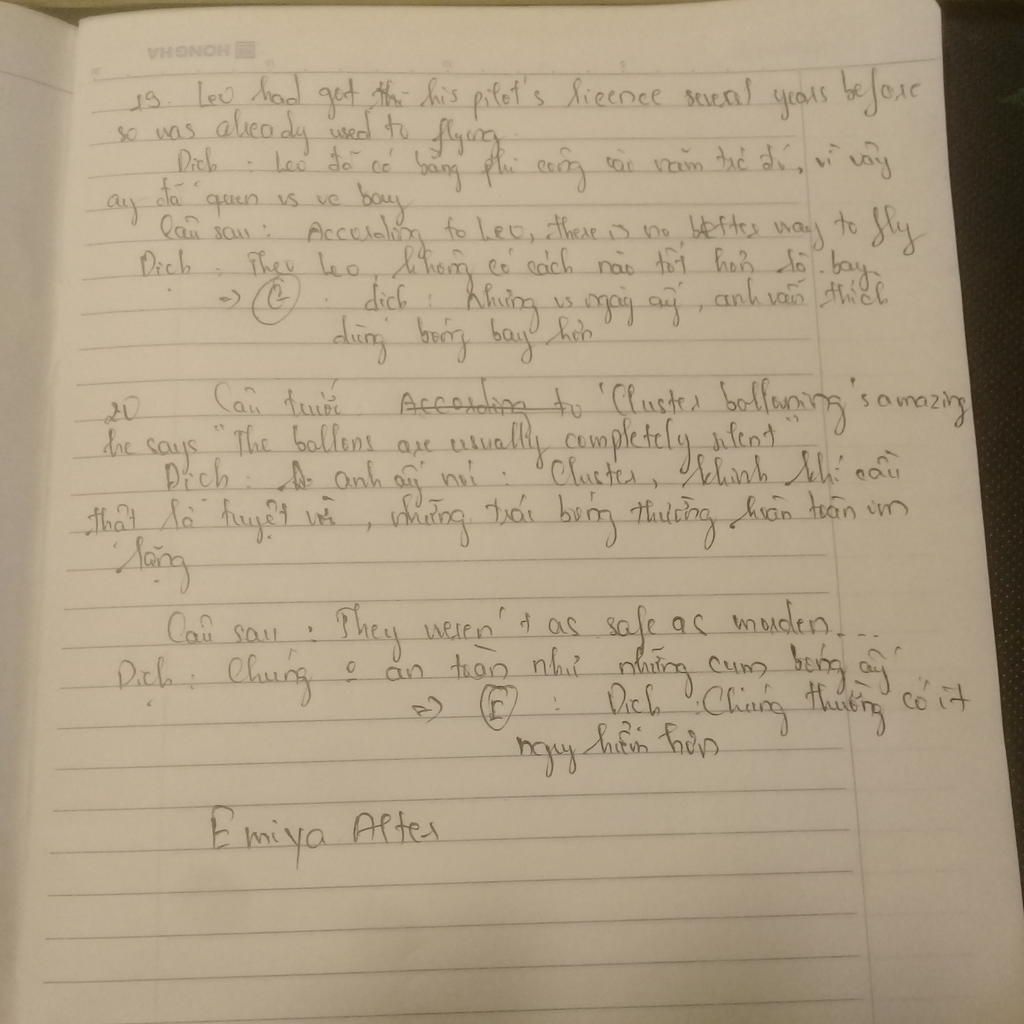 HONGHA
19. Leo had get his pilot's licence several years before
so was already used to flying
Dich : Leo đã có bằng phi công năm trc đó, vì vậy
ay đã quen vs vc bay
Câu sau : According to Leo, there is no better way to fly
Dich : Theo Leo, không có cách nào tốt hơn là bay
=> dich : Nhưng vs ngày ấy, anh vẫn thích
dùng bóng bay hơn
20 Câu trước According to "Cluster ballooning's amazing
he says "The ballons are usually completely silent"
Dich : anh ấy nói : Cluster, khinh khí cầu
thật là tuyệt vời, những trái bóng thường hoàn toàn im
lặng
Câu sau : They weren't as safe as morden ...
Dich : Chúng o an toàn như những cụm bóng ấy
=> E : Dich : Chúng thường có ít
nguy hiểm hơn
Emiya Alter